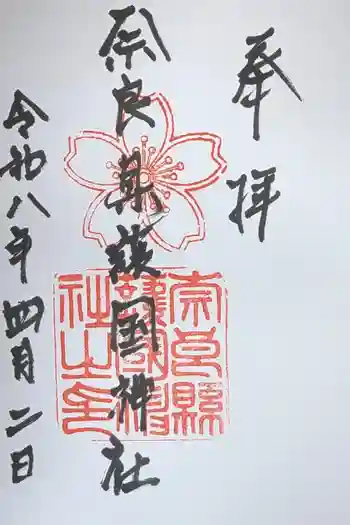 奉拝
奈良県護国神社
令和八年四月二日
奈良縣
護國神
社之印